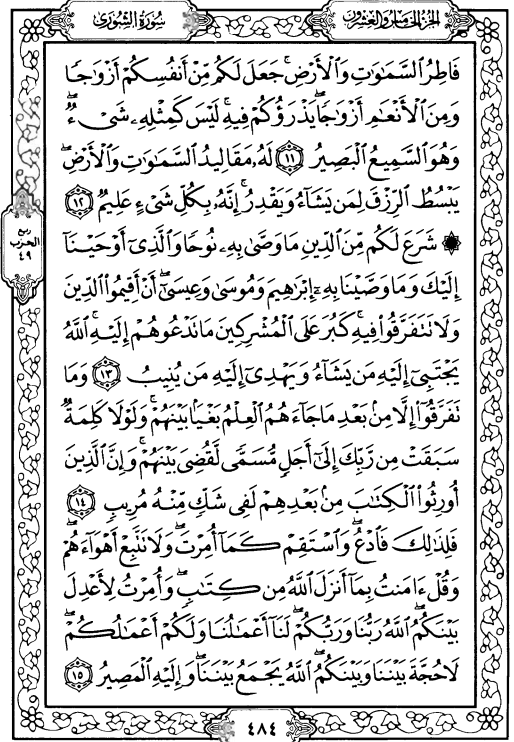 الجزء الخامس والعشرون
سورة الشورى
فَاطِرُ ٱلسَّمَٰوَٰتِ وَٱلْأَرْضِ ۚ جَعَلَ لَكُم مِّنْ أَنفُسِكُمْ أَزْوَٰجًا
وَمِنَ ٱلْأَنْعَٰمِ أَزْوَٰجًا ۖ يَذْرَؤُكُمْ فِيهِ ۚ لَيْسَ كَمِثْلِهِۦ شَىْءٌ ۖ
وَهُوَ ٱلسَّمِيعُ ٱلْبَصِيرُ ١١ لَهُۥ مَقَالِيدُ ٱلسَّمَٰوَٰتِ وَٱلْأَرْضِ ۖ
يَبْسُطُ ٱلرِّزْقَ لِمَن يَشَآءُ وَيَقْدِرُ ۚ إِنَّهُۥ بِكُلِّ شَىْءٍ عَلِيمٌ ١٢
۞ شَرَعَ لَكُم مِّنَ ٱلدِّينِ مَا وَصَّىٰ بِهِۦ نُوحًا وَٱلَّذِىٓ أَوْحَيْنَآ
إِلَيْكَ وَمَا وَصَّيْنَا بِهِۦٓ إِبْرَٰهِيمَ وَمُوسَىٰ وَعِيسَىٰٓ ۖ أَنْ أَقِيمُوا۟ ٱلدِّينَ
وَلَا تَتَفَرَّقُوا۟ فِيهِ ۚ كَبُرَ عَلَى ٱلْمُشْرِكِينَ مَا تَدْعُوهُمْ إِلَيْهِ ۚ ٱللَّهُ
يَجْتَبِىٓ إِلَيْهِ مَن يَشَآءُ وَيَهْدِىٓ إِلَيْهِ مَن يُنِيبُ ١٣ وَمَا
تَفَرَّقُوٓا۟ إِلَّا مِنۢ بَعْدِ مَا جَآءَهُمُ ٱلْعِلْمُ بَغْيًۢا بَيْنَهُمْ ۚ وَلَوْلَا كَلِمَةٌ
سَبَقَتْ مِن رَّبِّكَ إِلَىٰٓ أَجَلٍ مُّسَمًّى لَّقُضِىَ بَيْنَهُمْ ۚ وَإِنَّ ٱلَّذِينَ
أُورِثُوا۟ ٱلْكِتَٰبَ مِنۢ بَعْدِهِمْ لَفِى شَكٍّ مِّنْهُ مُرِيبٍ ١٤
فَلِذَٰلِكَ فَٱدْعُ ۖ وَٱسْتَقِمْ كَمَآ أُمِرْتَ ۖ وَلَا تَتَّبِعْ أَهْوَآءَهُمْ ۖ
وَقُلْ ءَامَنتُ بِمَآ أَنزَلَ ٱللَّهُ مِن كِتَٰبٍ ۖ وَأُمِرْتُ لِأَعْدِلَ
بَيْنَكُمُ ۖ ٱللَّهُ رَبُّنَا وَرَبُّكُمْ ۖ لَنَآ أَعْمَٰلُنَا وَلَكُمْ أَعْمَٰلُكُمْ ۖ
لَا حُجَّةَ بَيْنَنَا وَبَيْنَكُمُ ۖ ٱللَّهُ يَجْمَعُ بَيْنَنَا ۖ وَإِلَيْهِ ٱلْمَصِيرُ ١٥
ربع
الحزب
٤٩
٤٨٤